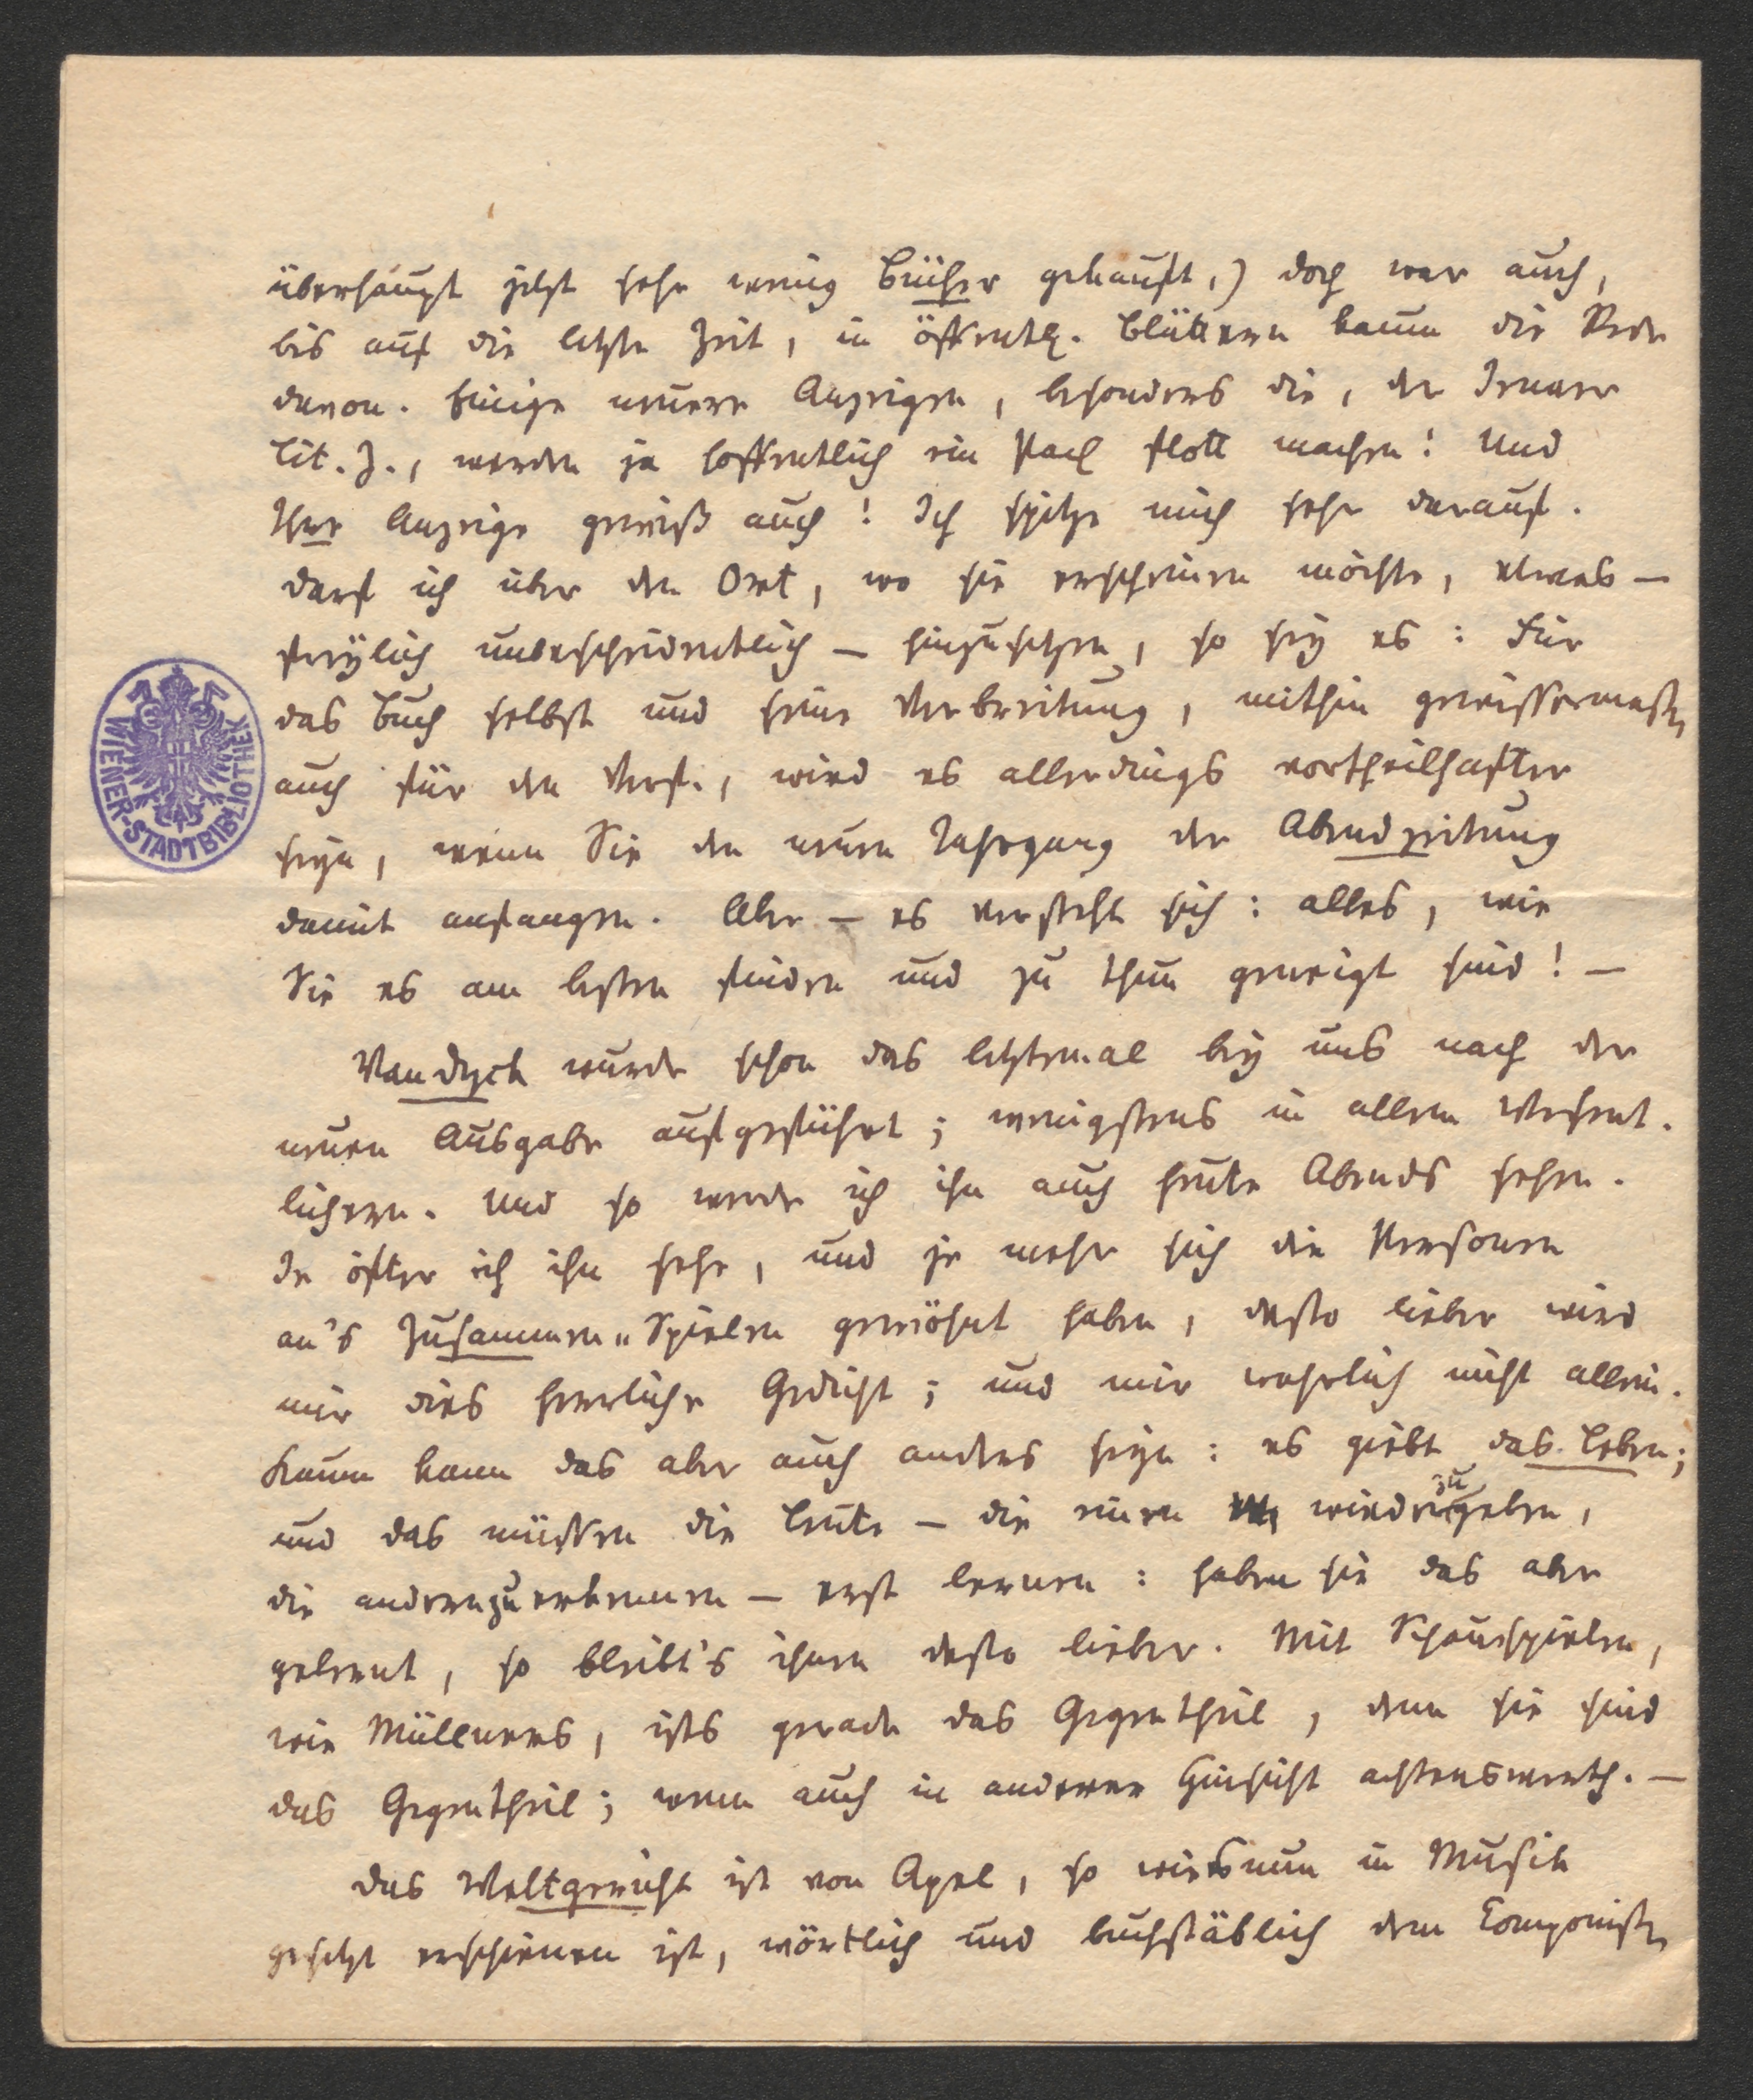 überhaupt jetzt sehr wenig Bücher gekauft,) doch war auch,
bis auf die letzte Zeit, in öffentl. Blättern kaum die Rede
davon. Einige neuere Anzeigen, besonders die, der Jenaer
Lit. Z., werden ja hoffentlich ein flott machen! Und
Ihre Anzeige gewiß auch! Ich spitze mich sehr darauf.
Darf ich über den Ort, wo sie erscheinen möchte, etwas —
freylich unbescheidentlich — hinzusetzen, so sey es: Für
das Buch selbst und seine Verbreitung, mithin gewissermaßen
auch für den Verf., wird es allerdings vortheilhafter
seyn, wenn Sie den neuen Jahrgang der Abendzeitung
damit anfangen. Aber — es versteht sich: alles, wie
Sie es am besten finden und zu thun geneigt sind! —
Vandyck wurde schon das letztemal bey uns nach der
neuen Ausgabe aufgeführt; wenigstens in allem Wesent-
lichern. Und so werde ich ihn auch heute Abends sehen.
Je öfter ich ihn sehe, und je mehr sich die Personen
an's Zusammen-Spielen gewöhnt haben, desto lieber wird
mir dies herrliche Gedicht; und mir wahrlich nicht allein.
Kaum kann das aber auch anders seyn: es giebt das Leben;
und das müssen die Leute — die einen wiederzugeben,
die andern zu erkennen — erst lernen: haben sie das aber
gelernt, so bleibt's ihnen desto lieber. Mit Schauspielen,
wie Müllners, ists gerade das Gegentheil, denn sie sind
das Gegentheil; wenn auch in anderer Hinsicht achtenswerth. —
Das Weltgericht ist von Apel, so wie es nun in Musik
gesetzt erschienen ist, wörtlich und buchstäblich dem Componisten
WIENER-STADTBIBLIOTHEK